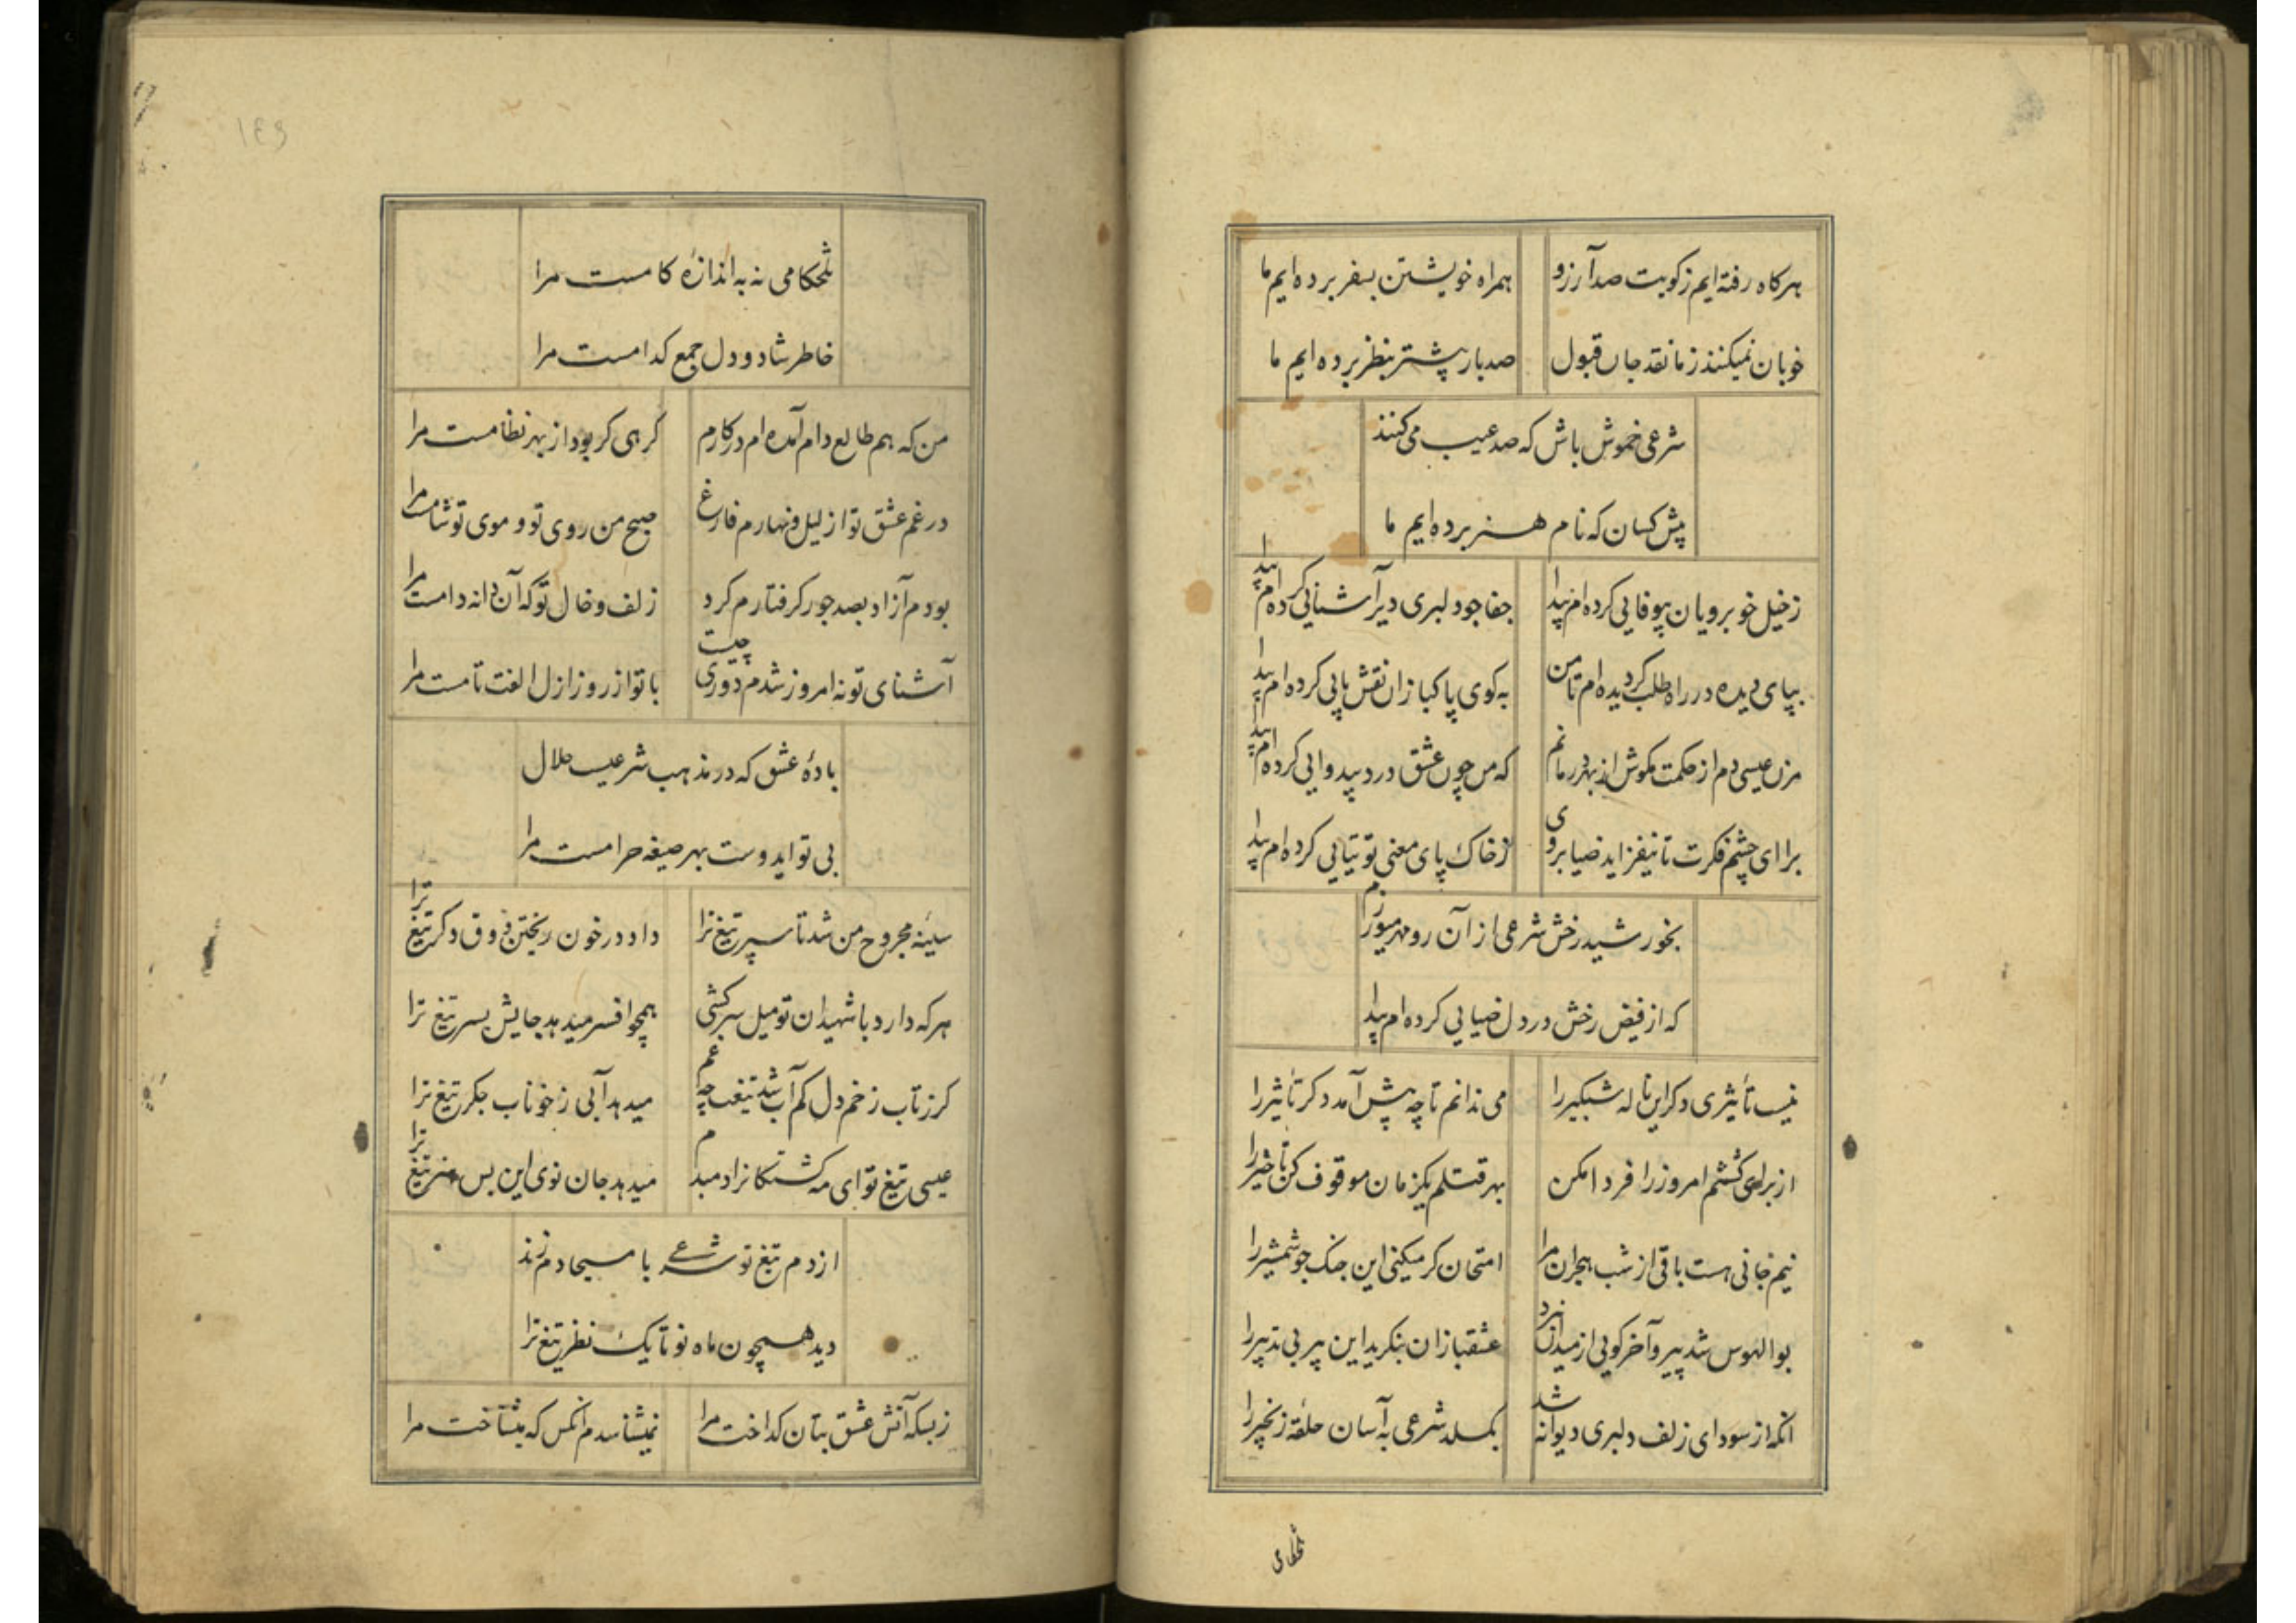 هرکاه رفته ایم زکویت صد آرزو همراه خویشتن بسفر برده ایم ما
خوبان نمیکنند ز ما نقد جان قبول صد بار پیشتر بنظر برده ایم ما
شرعی خموش باش که صد عیب می کنند
پیش کسان که نام هنر برده ایم ما
زخیل خوبرویان بیوفایی کرده ام پیدا جفاجو دلبری دیر آشنایی کرده ام پیدا
بپای دیده در راه طلب کردیده ام تا من به کوی پاکبازان نقش پایی کرده ام پیدا
مزن عیسی دم از حکمت مکوش از بهر درمانم که من چون عشق درد بیدوایی کرده ام پیدا
برای چشم فکرت تا نیفزاید ضیا بروی زخاک پای معنی توتیایی کرده ام پیدا
بخورشید رخش شرعی از آن رو مهر میورزم
که از فیض رخش در دل ضیایی کرده ام پیدا
نیست تأثیری دکر این ناله شبکیر را می ندانم تا چه پیش آمد دکر تأثیر را
از برای کشتنم امروز را فردا مکن بهر قتلم یکزمان موقوف کن تاخیر را
نیم جانی هست باقی از شب هجران مرا امتحان کر میکنی این جنک جو شمشیر را
بوالهوس شد پیر و آخر کویی از میدان نبرد عشقبازان بنکرید این پیر بی تدبیر را
آنکه از سودای زلف دلبری دیوانه شد بکسلد شرعی به آسان حلقه زنجیر را
تلخکامی
۱۴۹
تلخکامی نه به اندازهٔ کامست مرا
خاطر شاد و دل جمع کدامست مرا
من که هم طالع دام آمده ام در کارم کرهی کر بود از بهر نظامست مرا
در غم عشق تو از لیل و نهارم فارغ صبح من روی تو و موی تو شامست مرا
بودم آزاد بصد جور کرفتارم کرد زلف و خال تو که آن دانه دامست مرا
آشنای تو نه امروز شدم دوری چیست با تو از روز ازل الفت تامست مرا
بادهٔ عشق که در مذهب شرعیست حلال
بی تو ایدوست بهر صیغه حرامست مرا
سینهٔ مجروح من شد تا سپر تیغ ترا داد در خون ریختن ذوق دکر تیغ ترا
هر که دارد با شهیدان تو میل سرکشی همچو افسر میدهد جایش بسر تیغ ترا
کر زتاب زخم دل کم آب شد تیغت چه غم میدهد آبی زخوناب جکر تیغ ترا
عیسی تیغ تو ای مه کشتکانرا دمبدم میدهد جان نوی این بس هنر تیغ ترا
از دم تیغ تو شرعی با مسیحا دم زند
دید همچون ماه نو تا یک نظر تیغ ترا
زبسکه آتش عشق بتان کداخت مرا نمیشناسدم آنکس که میشناخت مرا